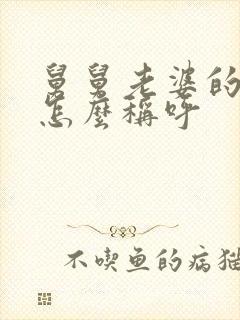 舅舅老婆的
怎麼稱呼
不喫鱼的病猫